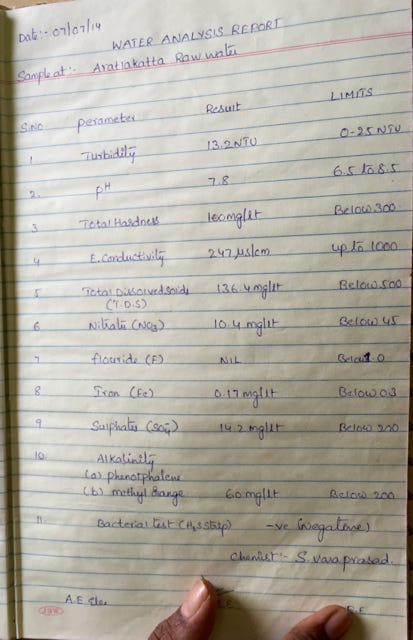 Date:- 07/07/14
WATER ANALYSIS REPORT
Sample at:- Aratlakatta Raw water
S.NO perameter Result LIMITS
1 Turbidity 13.2 NTU 0-25 NTU
2. PH 7.8 6.5 to 8.5
3 Total Hardness 160mg/lt Below 300
4 E. Conductivity 247 µs/cm up to 1000
5 Total Dissolvedsolids 136.4 mg/lt Below 500
(T.D.S)
6 Nitrate (NO3) 10.4 mg/lt Below 45
7 flouride (F) NIL Below 1.0
8 Iron (Fe) 0.17 mg/lt Below 0.3
9 Sulphates (SO4) 14.2 mg/lt Below 200
10. Alkalinity
(a) phenotphalene
(b) methyl orange 60 mg/lt Below 200
11. Bacterial test (H2S Strip) -ve (Negative)
Chemist:- S. varaprasad.
A.E